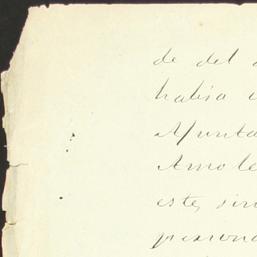 de del
habia
Apunta
Amole
este, sin